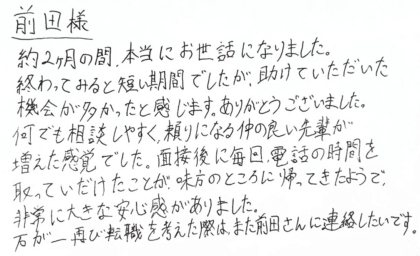 前田様
約2ヶ月の間、本当にお世話になりました。
終わってみると短い期間でしたが、助けていただいた
機会が多かったと感じます。ありがとうございました。
何でも相談しやすく、頼りになる仲の良い先輩が
増えた感覚でした。面接後に毎回、電話の時間を
取っていだけたことが味方のところに帰ってきたようで、
非常に大きな安心感がありました。
万が一再び転職を考えた際は、また前田さんに連絡したいです。